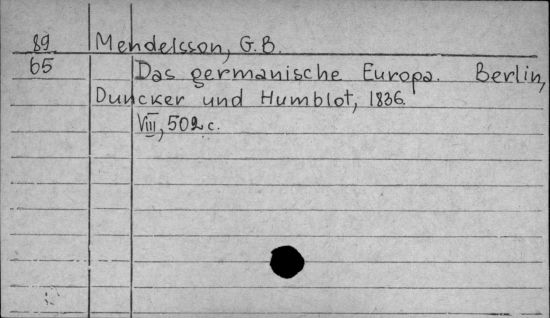 89 Mendelsson, G.B.
65 Das germanische Europa. Berlin,
Duncker und Humblot, 1836.
VIII, 502 c.